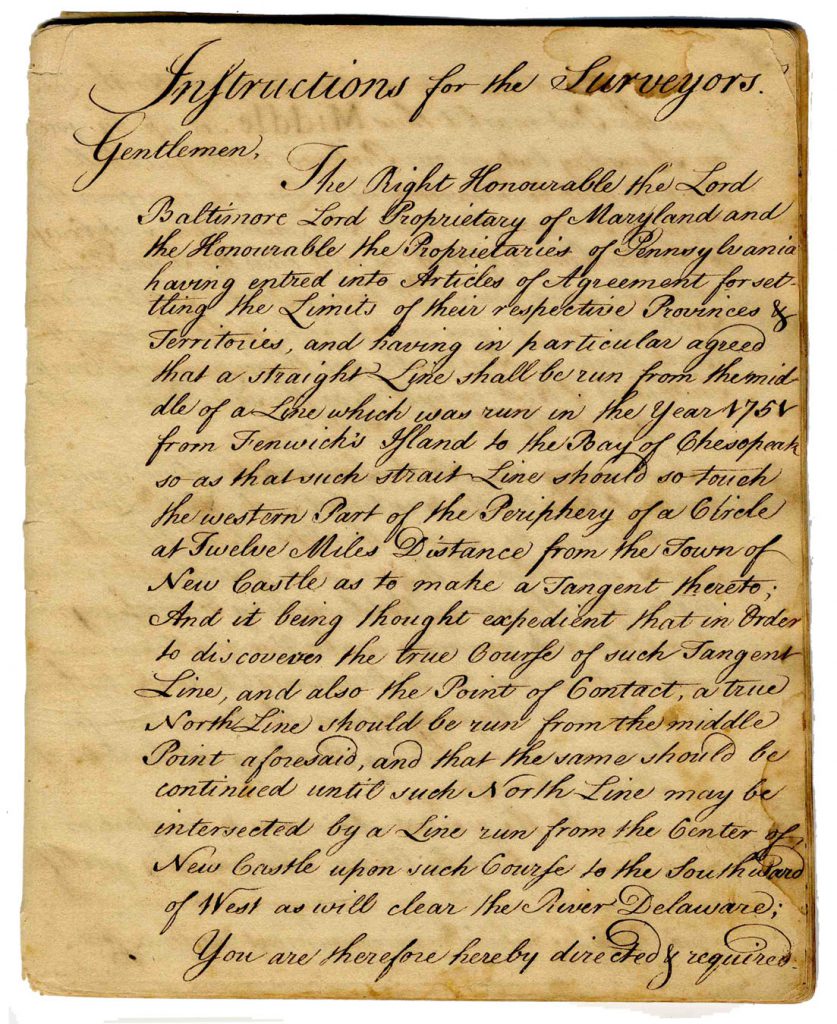 Instructions for the Surveyors.
Gentlemen,
The Right Honourable the Lord
Baltimore Lord Proprietary of Maryland and
the Honourable the Proprietaries of Pennsylvania
having entred into Articles of Agreement for set-
tling the Limits of their respective Provinces &
Territories, and having in particular agreed
that a straight Line shall be run from the mid
dle of a Line which was run in the Year 1751
from Fenwick's Island to the Bay of Chesopeak
so as that such strait Line should so touch
the western Part of the Periphery of a Circle
at Twelve Miles Distance from the Town of
New Castle as to make a Tangent thereto;
And it being thought expedient that in Order
to discover the true Course of such Tangent
Line, and also the Point of Contact, a true
North Line should be run from the middle
Point aforesaid, and that the same should be
continued until such North Line may be
intersected by a Line run from the Center of
New Castle upon such Course to the Southward
of West as will clear the River Delaware;
You are therefore hereby directed & required